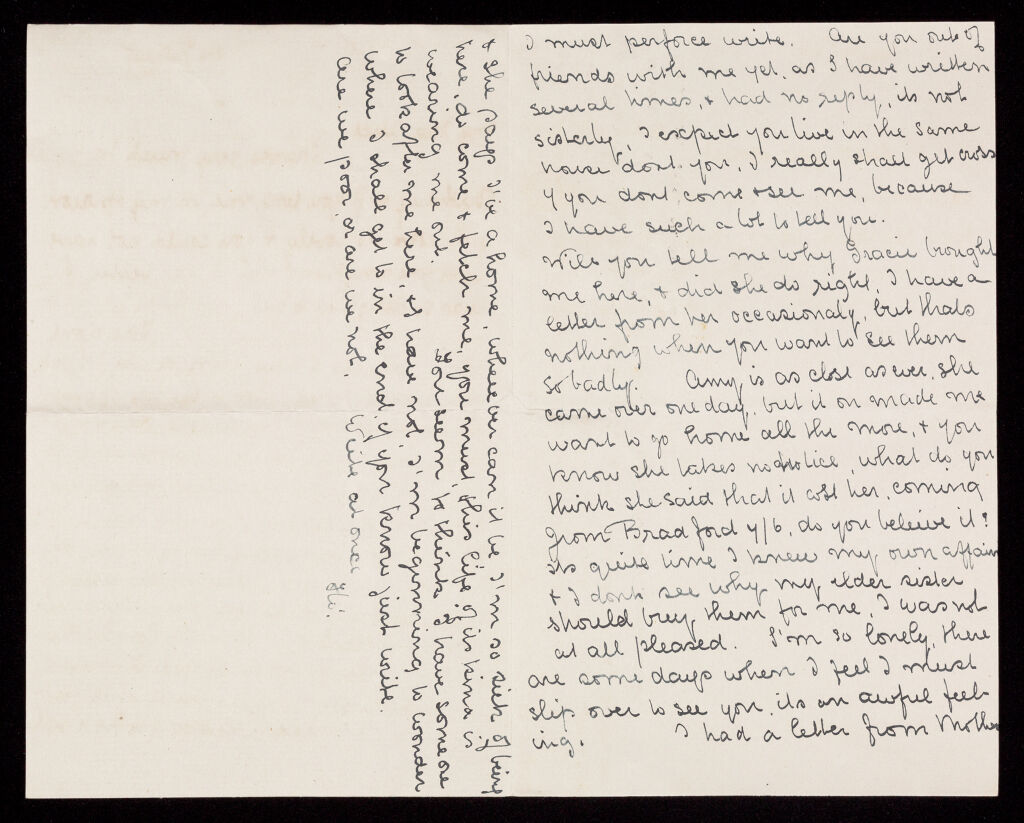 I must perforce write. Are you out of
friends with me yet, as I have written
several times, & had no reply, its not
sisterly, I expect you live in the same
house dont you, I really shall get cross
if you dont come & see me, because
I have such a lot to tell you.
Will you tell me why Gracie brought
me here, & did she do right, I have a
letter from her occasionaly, but thats
nothing when you want to see them
so badly. Amy is as close as ever, she
came over one day, but it on made me
want to go home all the more, & you
know she takes no notice, what do you
think she said that it cost her, coming
from Bradford 4/6, do you beleive it?
its quite time I knew my own affairs
& I dont see why my elder sister
should buy them for me, I was not
at all pleased. I'm so lonely, there
are some days when I feel I must
slip over to see you, its an awful feel-
ing. I had a letter from Mother
& she says I've a home, wherever can it be, I'm so sick of being
here, do come & fetch me, you must, this life of its kind is
wearing me out. You seem to think I have someone
to look after me here, & I have not, I'm beginning to wonder
where I shall get to in the end, if you know just write.
are we poor, or are we not. Write at once